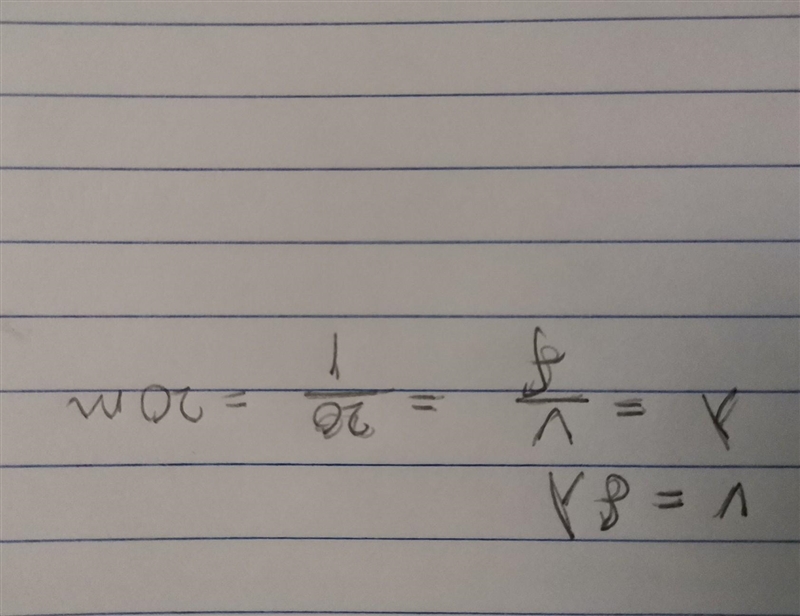 v = fλ
λ = v/f = 20/1 = 20m